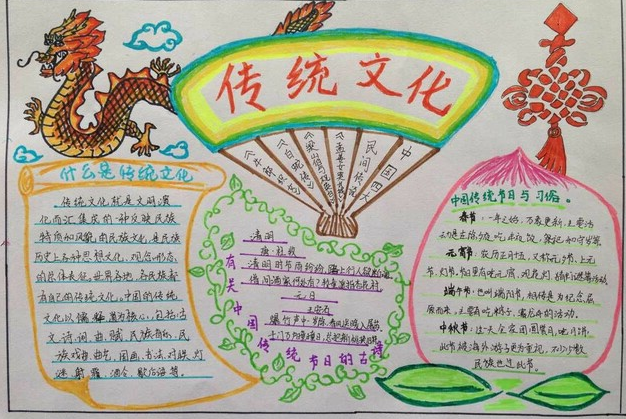 传统文化
中国四大
民间传说
《孟姜女哭长城》
《梁山伯与祝英台》
《白蛇传》
《牛郎织女》
什么是传统文化
传统文化就是文明演
化而汇集成的一种反映民族
特质和风貌的民族文化,是民族
历史上各种思想文化、观念形态
的总体表征。世界各地,各民族都
有自己的传统文化。中国的传统
文化以儒 为核心,包括古
文、诗、词、曲、赋、民族音乐、民
族戏剧、曲艺、国画、书法、对联、灯
谜、射覆、酒令、歇后语等。
有关中国传统节日的古诗
清明
唐·杜牧
清明时节雨纷纷,路上行人欲断魂。
借问酒家何处有?牧童遥指杏花村。
元日
王安石
爆竹声中一岁除,春风送暖入屠苏。
千门万户曈曈日,总把新桃换旧符。
中国传统节日与习俗。
春节:一年之始,万象更新,主要活
动是在除夕夜吃年夜饭,
元宵节:农历正月十五,又称元夕节、上元
节、灯节。
端午节:也叫端阳节,相传是为纪念屈
原而来,主要有吃粽子、赛龙舟的活动。
中秋节:这天全家团圆赏月、吃月饼,
此节被海外游子更为重视,不少少数
民族也过此节。